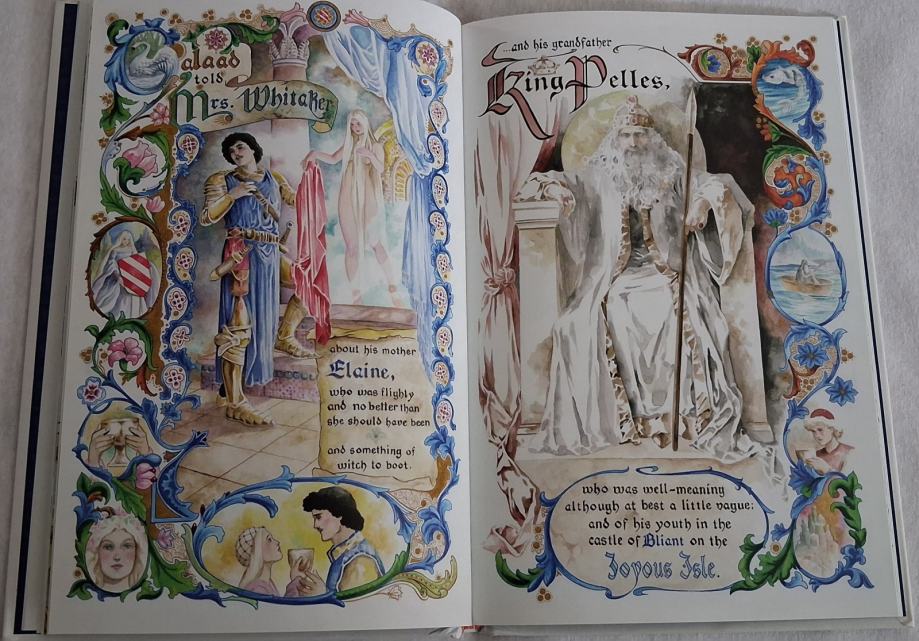 Galaad
told
Mrs. Whitaker
about his mother
Elaine,
who was flighty
and no better than
she should have been
and something of
witch to boot.
...and his grandfather
King Pelles,
who was well-meaning
although at best a little vague;
and of his youth in the
castle of Bliant on the
Joyous Isle.